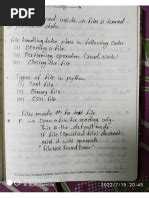 data stored inside in files is termed
as persistent data.
file handling takes place in following order
(i) Opening a file
(ii) Performing operation (read, write)
(iii) Closing the file
Types of file in python
(i) Text file
(ii) Binary file
(iii) CSV file
Files modes to text file
r → Open a file for reading only.
This is the default mode.
If specified file doesn't
exist it will generate
File Not Found Error
2022/7/19 20:45